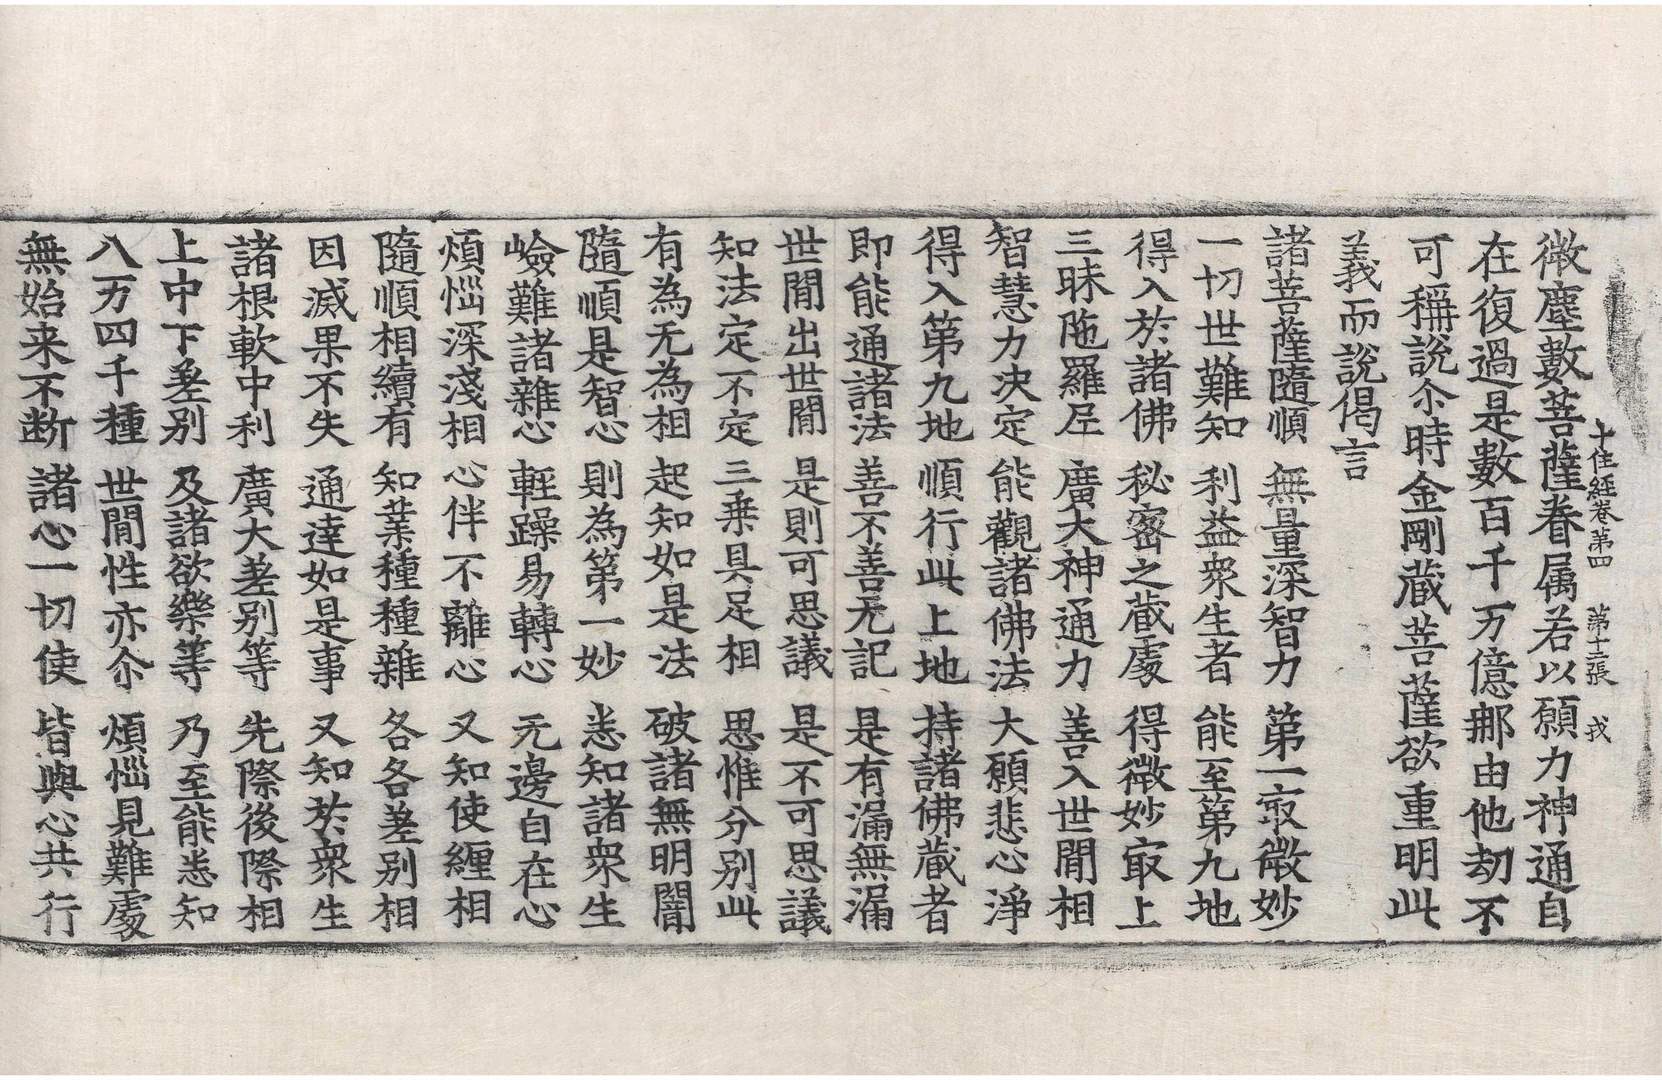 十住経卷第四　第十二張　戎
微塵數菩薩眷属若以願力神通自
在復過是數百千万億那由他劫不
可稱說尒時金剛蔵菩薩欲重明此
義而說偈言
諸菩薩隨順　無量深智力　第一㝡微妙
一切世難知　利益衆生者　能至第九地
得入於諸佛　秘密之蔵處　得微妙㝡上
三昧陁羅尼　廣大神通力　善入世間相
智慧力决定　能觀諸佛法　大願悲心淨
得入第九地　順行此上地　持諸佛蔵者
即能通諸法　善不善无記　是有漏無漏
世間出世間　是則可思議　是不可思議
知法定不定　三乗具足相　思惟分别此
有為无為相　起知如是法　破諸無明闇
隨順是智心　則為第一妙　悉知諸衆生
嶮難諸雜心　軽躁易轉心　无邊自在心
煩惱深淺相　心伴不離心　又知使纒相
隨順相續有　知業種種雜　各各差别相
因滅果不失　通達如是事　又知於衆生
諸根軟中利　廣大差别等　先際後際相
上中下差别　及諸欲樂等　乃至能悉知
八万四千種　世間性亦尒　煩惱見難處
無始来不断　諸心一切使　皆與心共行